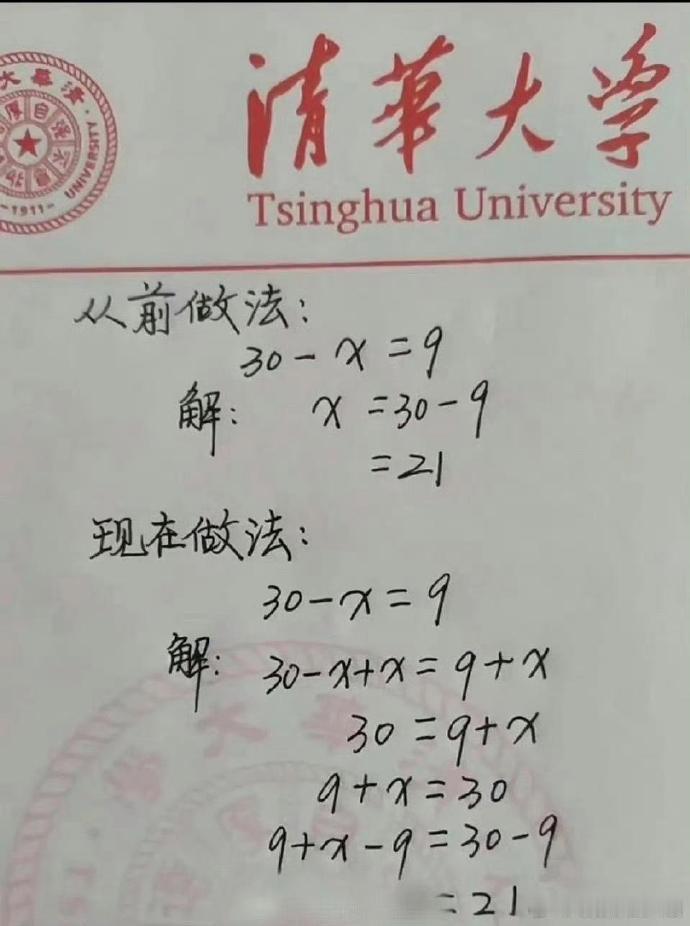 清華大学
Tsinghua University
UNIVERSITY
-1911-
从前做法:
30-x=9
解: x=30-9
=21
现在做法:
30-x=9
解: 30-x+x=9+x
30=9+x
9+x=30
9+x-9=30-9
=21